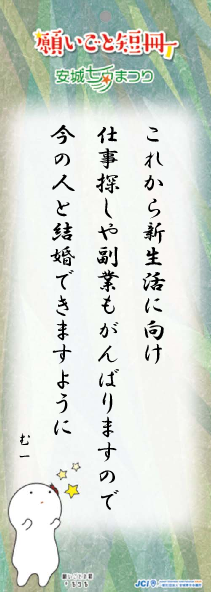 願いごと短冊
安城七夕まつり
これから新生活に向け
仕事探しや副業もがんばりますので
今の人と結婚できますように
むー
願いごと短冊
きーぼー
JCI